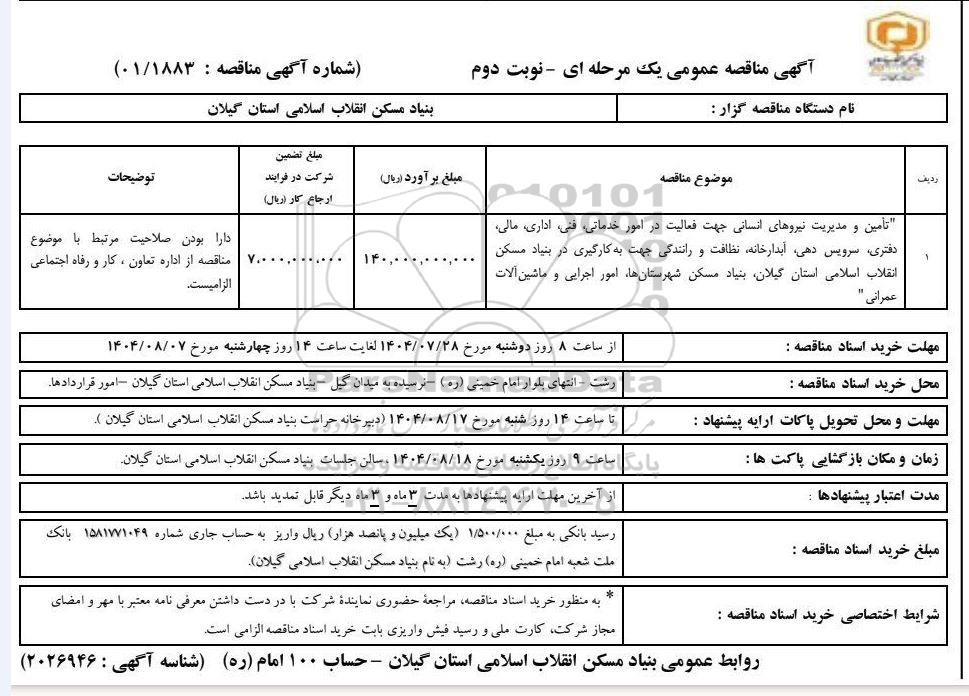 آگهی مناقصه عمومی یک مرحله ای -نوبت دوم (شماره آگهی مناقصه : ۰۱/۱۸۸۳)
نام دستگاه مناقصه گزار : بنیاد مسکن انقلاب اسلامی استان گیلان
ردیف موضوع مناقصه مبلغ برآورد (ریال) مبلغ تضمین شرکت در فرایند ارجاع کار (ریال) توضیحات
۱
"تأمین و مدیریت نیروهای انسانی جهت فعالیت در امور خدماتی، فنی، اداری، مالی،
دفتری، سرویس دهی، آبدارخانه، نظافت و رانندگی جهت به‌کارگیری در بنیاد مسکن
انقلاب اسلامی استان گیلان، بنیاد مسکن شهرستان‌ها، امور اجرایی و ماشین‌آلات
عمرانی"
۱۴۰,۰۰۰,۰۰۰,۰۰۰
۷,۰۰۰,۰۰۰,۰۰۰
دارا بودن صلاحیت مرتبط با موضوع
مناقصه از اداره تعاون ، کار و رفاه اجتماعی
الزامیست.
مهلت خرید اسناد مناقصه : از ساعت ۸ روز دوشنبه مورخ ۱۴۰۴/۰۷/۲۸ لغایت ساعت ۱۴ روز چهارشنبه مورخ ۱۴۰۴/۰۸/۰۷
محل خرید اسناد مناقصه : رشت - انتهای بلوار امام خمینی (ره ) –نرسیده به میدان گیل –بنیاد مسکن انقلاب اسلامی استان گیلان –امور قراردادها.
مهلت و محل تحویل پاکات ارایه پیشنهاد : تا ساعت ۱۴ روز شنبه مورخ ۱۴۰۴/۰۸/۱۷ (دبیرخانه حراست بنیاد مسکن انقلاب اسلامی استان گیلان ).
زمان و مکان بازگشایی پاکت ها : ساعت ۹ روز یکشنبه مورخ ۱۴۰۴/۰۸/۱۸ ، سالن جلسات بنیاد مسکن انقلاب اسلامی استان گیلان.
مدت اعتبار پیشنهادها : از آخرین مهلت ارایه پیشنهادها به مدت ۳ ماه و ۳ ماه دیگر قابل تمدید باشد.
مبلغ خرید اسناد مناقصه : رسید بانکی به مبلغ ۱/۵۰۰/۰۰۰ (یک میلیون و پانصد هزار) ریال واریز به حساب جاری شماره ۱۵۸۱۷۷۱۰۴۹ بانک
ملت شعبه امام خمینی (ره) رشت (به نام بنیاد مسکن انقلاب اسلامی گیلان).
شرایط اختصاصی خرید اسناد مناقصه : * به منظور خرید اسناد مناقصه، مراجعهٔ حضوری نمایندهٔ شرکت با در دست داشتن معرفی نامه معتبر با مهر و امضای
مجاز شرکت، کارت ملی و رسید فیش واریزی بابت خرید اسناد مناقصه الزامی است.
روابط عمومی بنیاد مسکن انقلاب اسلامی استان گیلان – حساب ۱۰۰ امام (ره) (شناسه آگهی : ۲۰۲۶۹۴۶)
ParsNamadData
۰۲۱-۸۸۳۴۹۶۷۰-۵